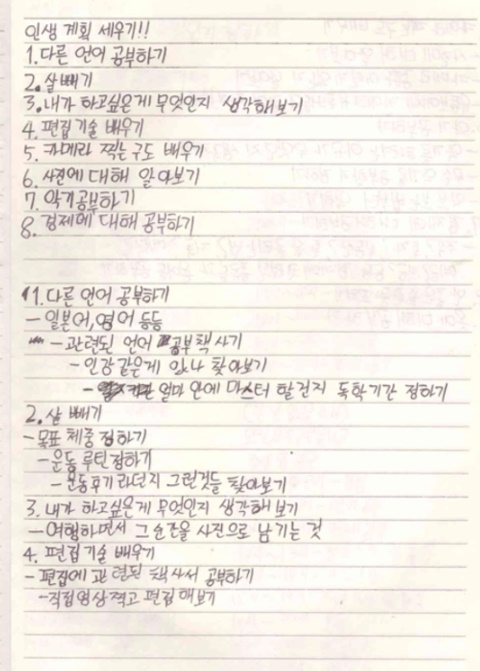 인생 계획 세우기!!
1. 다른 언어 공부하기
2. 살 빼기
3. 내가 하고싶은게 무엇인지 생각해보기
4. 편집 기술 배우기
5. 카메라 찍는 구도 배우기
6. 사진에 대해 알아보기
7. 악기 공부하기
8. 경제에 대해 공부하기
1. 다른 언어 공부하기
- 일본어, 영어 등등
- 관련된 언어 공부책 사기
- 인강 같은게 있나 찾아보기
- 얼마 안에 마스터 할건지 독학기간 정하기
2. 살 빼기
- 목표 체중 정하기
- 운동 루틴 정하기
- 운동후기라던지 그런것들 찾아보기
3. 내가 하고싶은게 무엇인지 생각해보기
- 여행하면서 그 순간을 사진으로 남기는 것
4. 편집 기술 배우기
- 편집에 관련된 책 사서 공부하기
- 직접 영상 찍고 편집 해보기